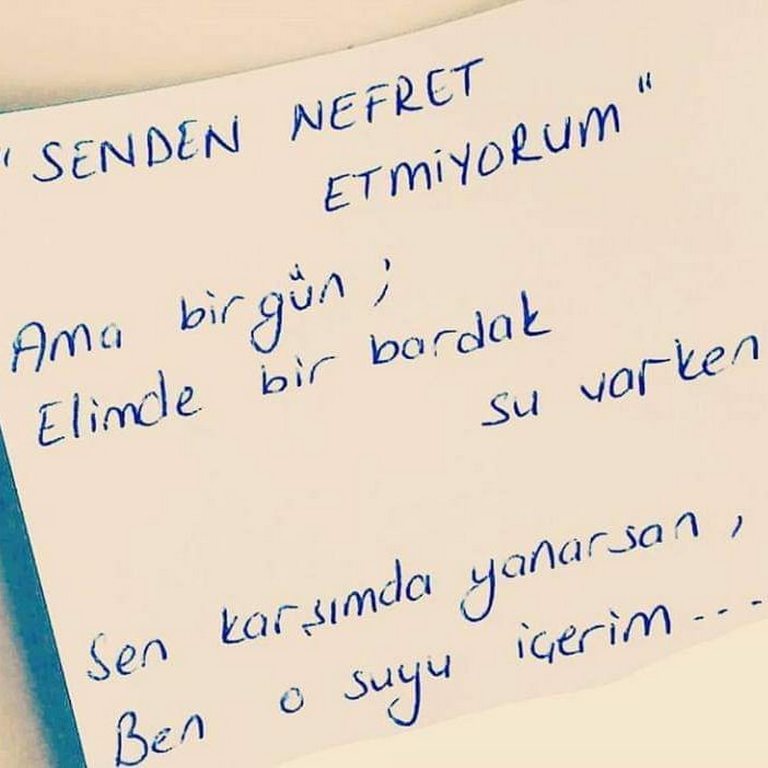 "SENDEN NEFRET
ETMİYORUM"
Ama birgün ;
Elimde bir bardak
su varken
Sen karşımda yanarsan ,
Ben o suyu içerim ----